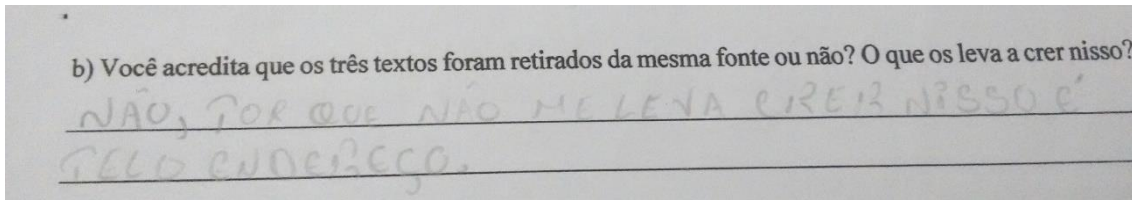 b) Você acredita que os três textos foram retirados da mesma fonte ou não? O que os leva a crer nisso?
NÃO, POR QUE NÃO ME LEVA CRER NISSO É
PELO ENDEREÇO.